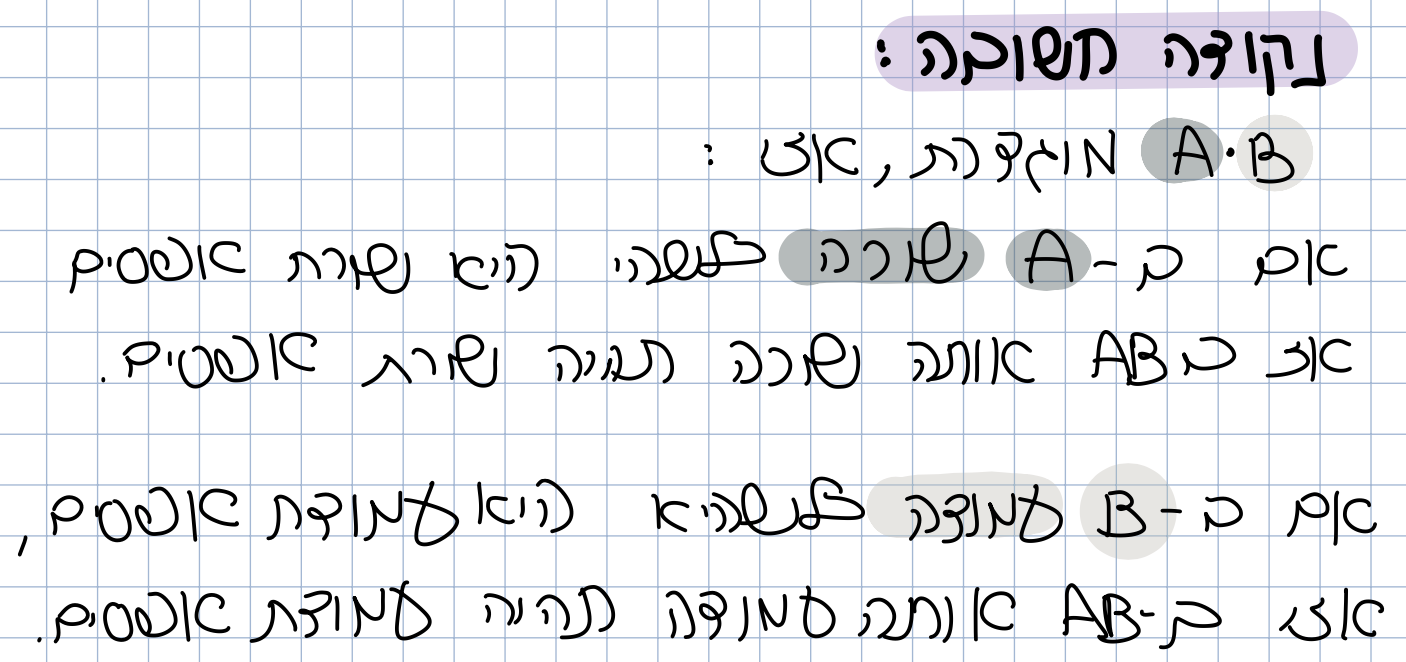 נקודה חשובה:
A·B מוגדרת, אז:
אם ב-A שורה כלשהי היא שורת אפסים
אז בAB אותה שורה תהיה שורת אפסים.
אם ב-B עמודה כלשהיא היא עמודת אפסים,
אז ב-AB אותה עמודה תהיה עמודת אפסים.